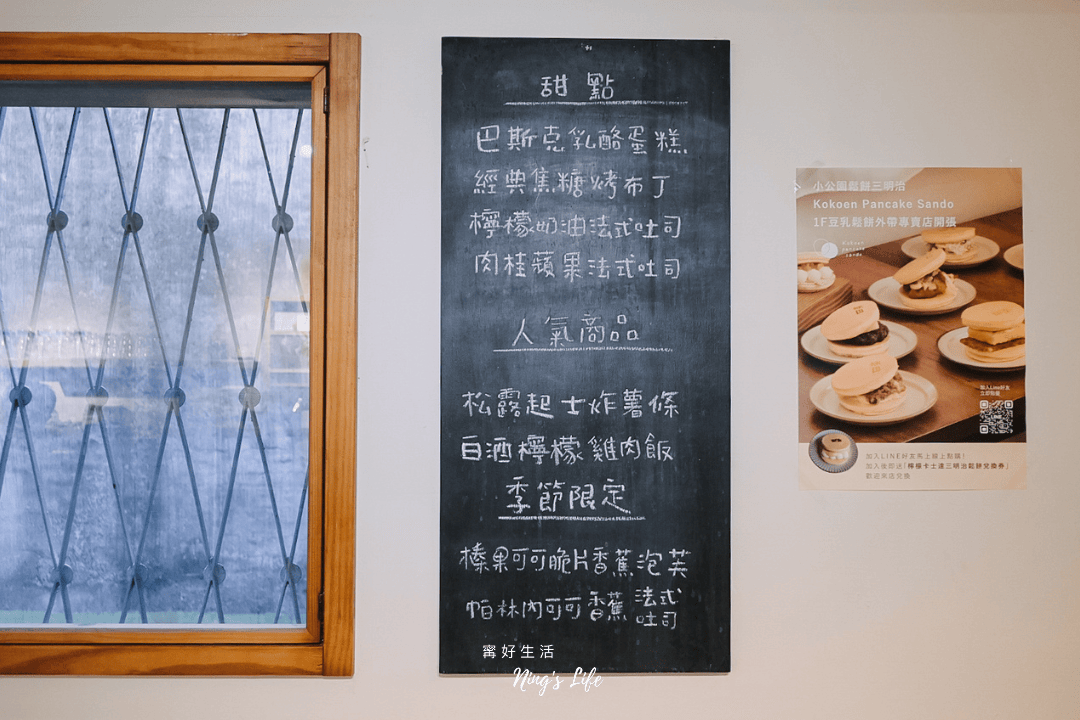 甜點
巴斯克乳酪蛋糕
經典焦糖烤布丁
檸檬奶油法式吐司
肉桂蘋果法式吐司
人氣商品
松露起士炸薯條
白酒檸檬雞肉飯
季節限定
榛果可可脆片香蕉泡芙
帕林內可可香蕉法式吐司
寗好生活
Ning's Life
小公園鬆餅三明治
Kokoen Pancake Sando
1F豆乳鬆餅外帶專賣店開張
Kokoen
pancake
sando
加入Line好友
立即點餐
加入LINE好友馬上線上點購!
加入後即送「檸檬卡士達三明治鬆餅兌換券」
歡迎來店兌換